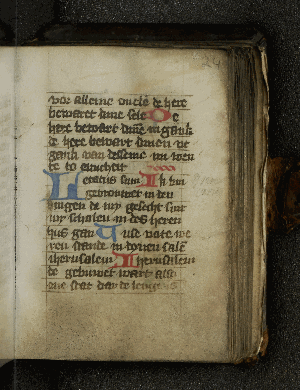 vor alleme ouele de here
bewaret dine sele De
here beware dinen in gank
de here beware dinen vt
gank van desseme nu wen
te to ewicheit
Letatus sum Ik bin
gevrouwet in den
dingen de my gesecht sint
wy scholen in des heren
hus gan Vse vote we
ren stande in dynen sale
iherusalem Iherusalem
de gebuwet wart also
ene stat dar de